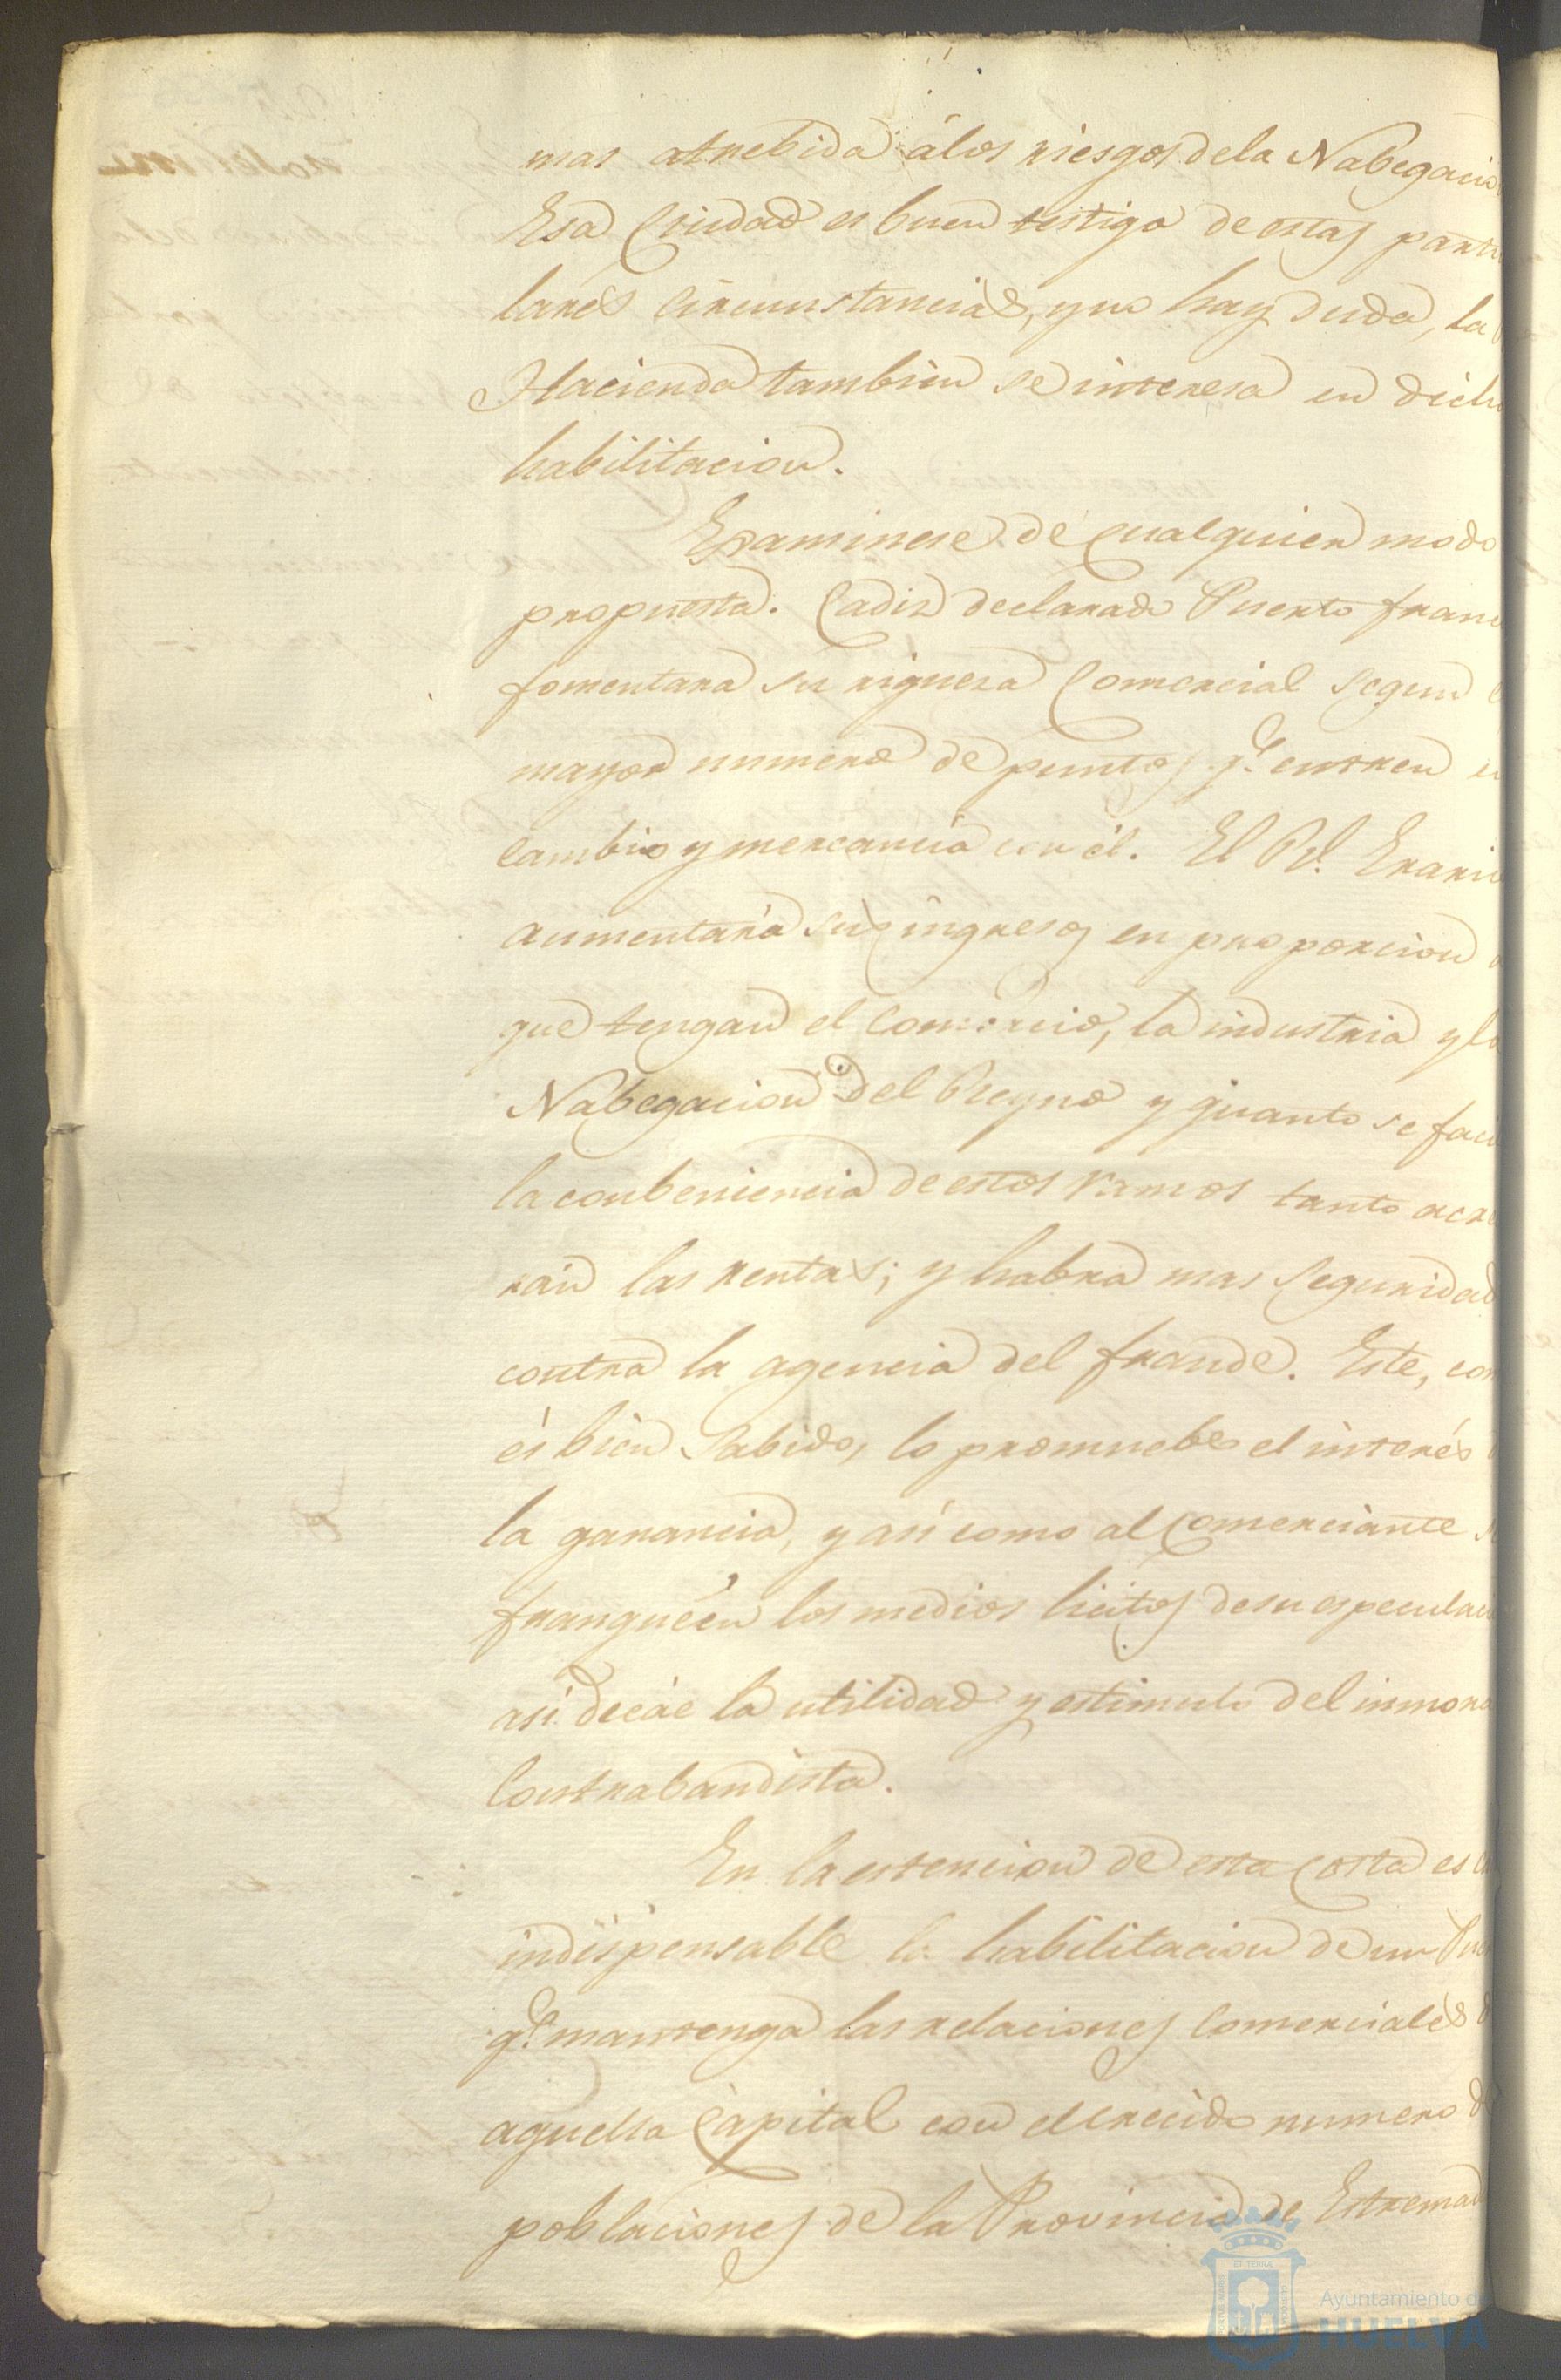 mas atrebida á los riesgos de la Nabegacio
Esa Ciudad es buen testigo de estas partic
lares Circunstancias, y no hay duda, la
Hacienda tambien se interesa en dich
habilitacion.
Examinese de qualquier modo
propuesta. Cadiz declarado Puerto franc
fomentara su riquesa Comercial segun
mayor numero de puntos q.e entren en
cambio y mercancia con él. El Rl. Erario
aumentará sus ingresos en proporcion
que tengan el Comercio, la industria y la
Nabegacion del Reyno y quanto se faci
la conbeniencia de estos ramos tanto acre
rán las rentas; y habra mas seguridad
contra la agencia del fraude. Este, com
és bien sabido, lo promuebe el interés
la ganancia, y así como al Comerciante se
franquéen los medios licitos de su especulac
así decáe la utilidad y estimulo del inmora
Contrabandista.
En la estencion de esta Costa es
indispensable la habilitacion de un Pue
q.e mantenga las relaciones Comerciales
aquella Capital con el crecido numero d
poblaciones de la Provincia de Estremad
Ayuntamiento de
HUELVA